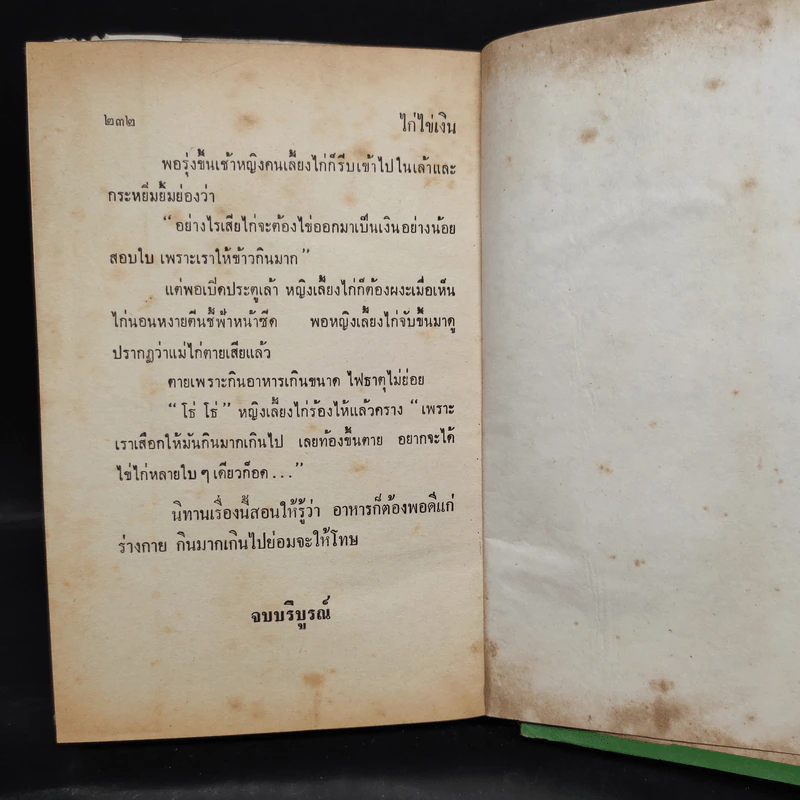 ๒๓๒ ไก่ไข่เงิน
พอรุ่งขึ้นเช้าหญิงคนเลี้ยงไก่ก็รีบเข้าไปในเล้าและ
กระหยิ่มยิ้มย่องว่า
“อย่างไรเสียไก่จะต้องไข่ออกมาเป็นเงินอย่างน้อย
สอบใบ เพราะเราให้ข้าวกินมาก”
แต่พอเปิดประตูเล้า หญิงเลี้ยงไก่ก็ต้องผงะเมื่อเห็น
ไก่นอนหงายตีนชี้ฟ้าหน้าซีด พอหญิงเลี้ยงไก่จับขึ้นมาดู
ปรากฏว่าแม่ไก่ตายเสียแล้ว
ตายเพราะกินอาหารเกินขนาด ไฟธาตุไม่ย่อย
“โธ่ โธ่” หญิงเลี้ยงไก่ร้องไห้แล้วคราง “เพราะ
เราเสือกให้มันกินมากเกินไป เลยท้องขึ้นตาย อยากจะได้
ไข่ไก่หลายใบ ๆ เดียวก็อด...”
นิทานเรื่องนี้สอนให้รู้ว่า อาหารก็ต้องพอดีแก่
ร่างกาย กินมากเกินไปย่อมจะให้โทษ
จบบริบูรณ์